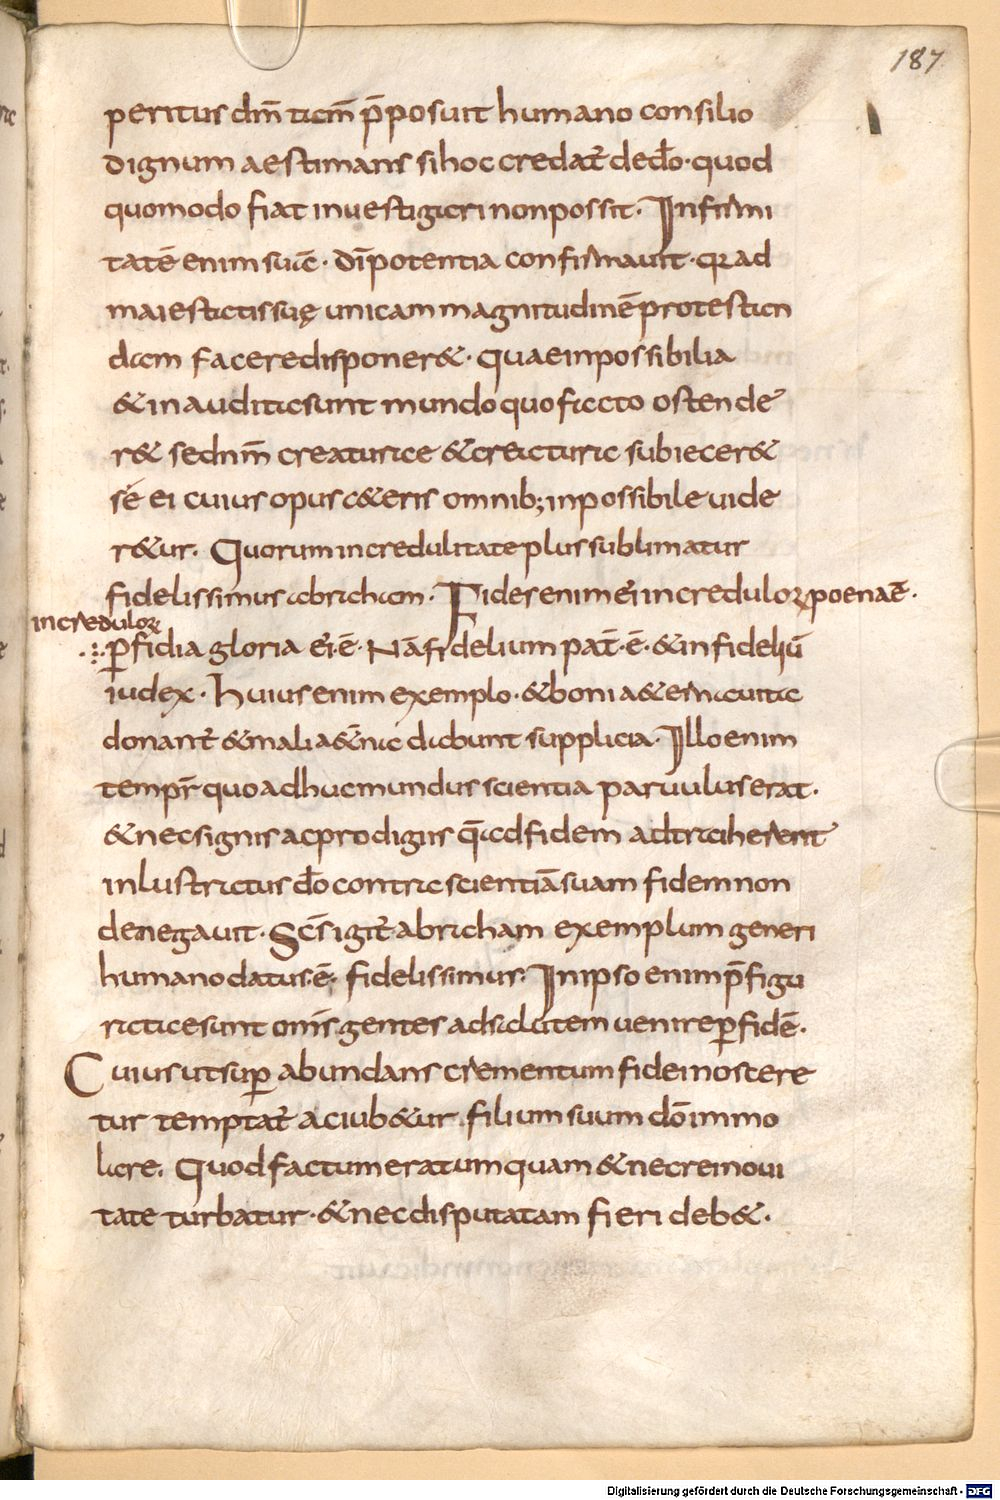 187
peritus dm̄ tam̄ p̄posuit humano consilio
dignum aestimans si hoc credat̄ dedō· quod
quomodo fiat inuestigari non possit· Infirmi
tatē enim suā· dī potentia confirmauit· q ad
maiestatis suę unicam magnitudinē protestan
dam facere disponer&· quae inpossibilia
& inaudita sunt mundo quo facto ostende
r& se dn̄m creaturae & creatura subiecer&
se ei cuius opus c&eris omnib; inpossibile uide
r&ur· Quorum incredulitate plus sublimatur
fidelissimus abraham· Fides enim ei incredulorꝝ poena ē·
incredulorꝝ
ꝑfidia gloria ei ē· Nā fidelium pat̄ ē· & infideliū
iudex· Huius enim exemplo· & boni a&erna uita
donant̄ & mali a&̄na dabunt supplicia· Illo enim
tempr̄ quo adhuc mundus scientia paruulus erat·
& nec signis ac prodigiis q̄ ad fidem adtraherent
inlustratus dō contra scientiā suam fidem non
denegauit· Sc̄s igit̄ abraham exemplum generi
humano datus ē· fidelissimus· In ipso enim p̄figu
ratae sunt om̄s gentes ad salutem uenire ꝑ fidē·
Cuius ut suꝑabundans crementum fidei nostere
tur temptat̄ ac iub&ur filium suum dō immo
lare· Quod factum erat umquam & nec re inoui
tate turbatur· & nec disputat tam fieri deb&·
Digitalisierung gefördert durch die Deutsche Forschungsgemeinschaft - DFG